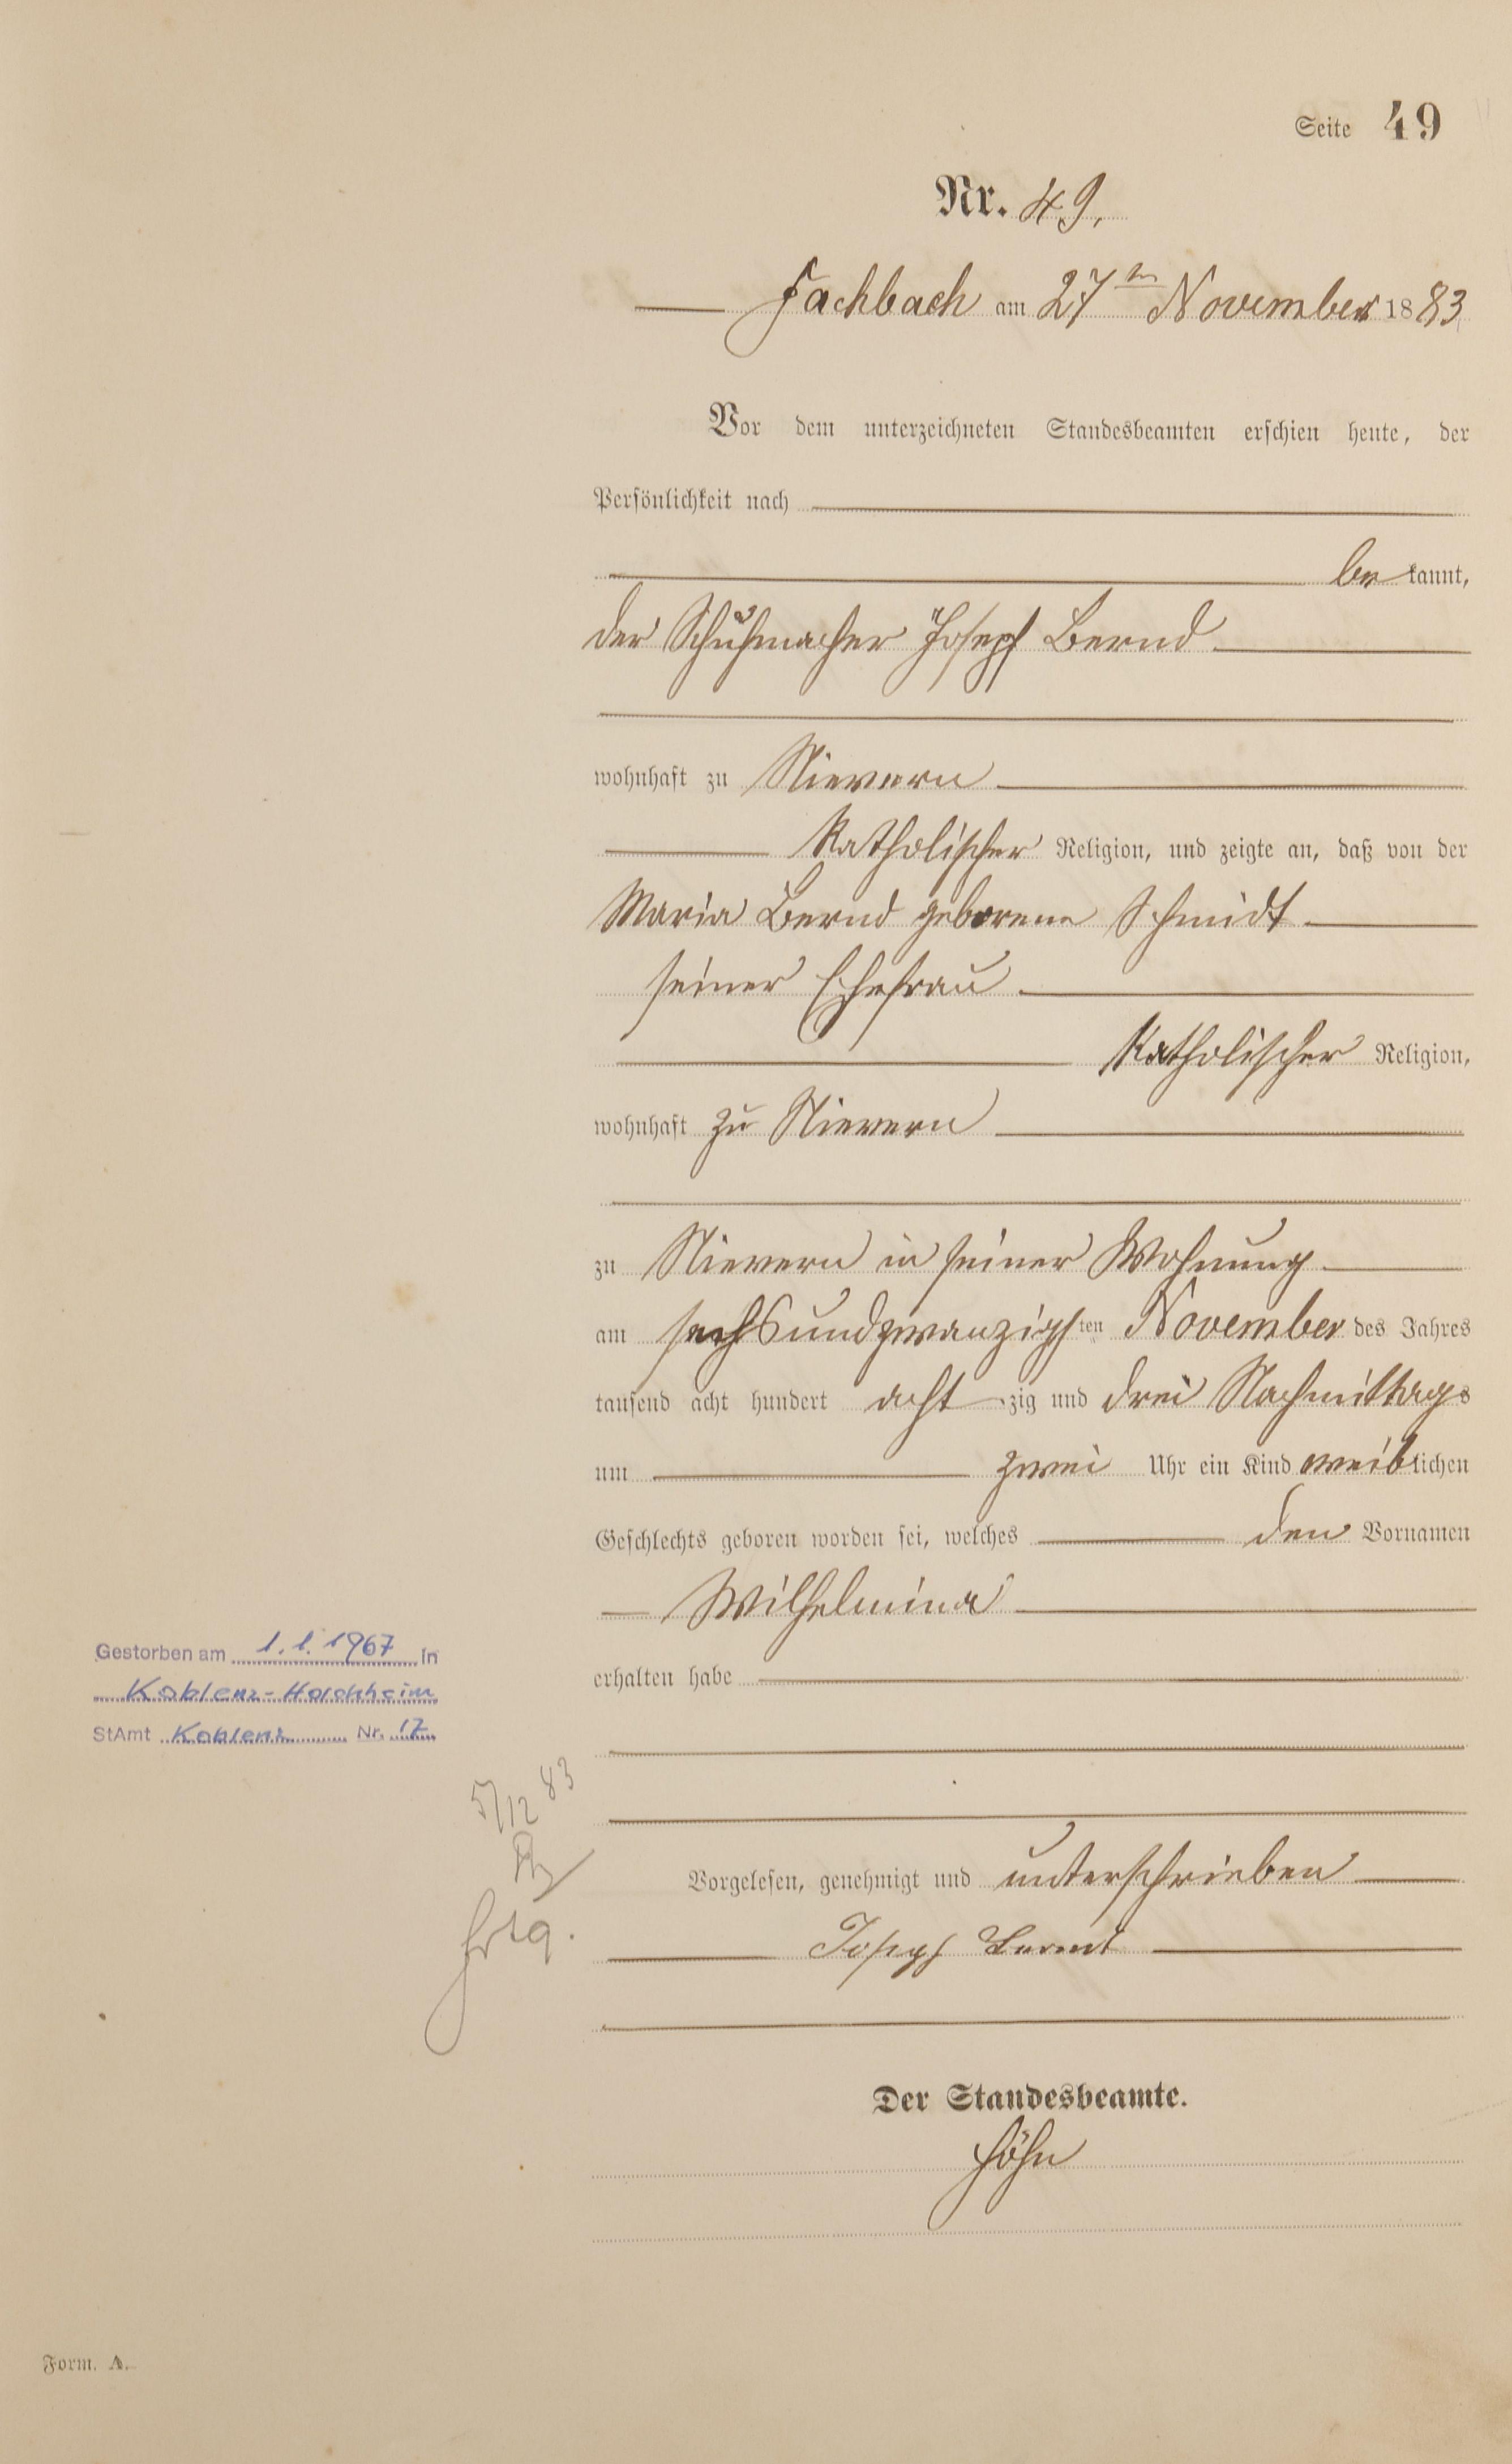 Seite 49
Nr. 49.
Fachbach am 27ten November 1883
Vor dem unterzeichneten Standesbeamten erschien heute, der
Persönlichkeit nach
bekannt,
der Schuhmacher Joseph Bernd
wohnhaft zu Nievern
katholischer Religion, und zeigte an, daß von der
Maria Bernd geborene Schmidt
seiner Ehefrau
katholischer Religion,
wohnhaft zu Nievern
zu Nievern in seiner Wohnung
am sechsundzwanzigsten November des Jahres
tausend acht hundert achtzig und drei Nachmittags
um zwei Uhr ein Kind weiblichen
Geschlechts geboren worden sei, welches den Vornamen
Wilhelmina
erhalten habe
Gestorben am 1.1.1967 in
Koblenz-Horchheim
StAmt Koblenz Nr. 17
5/12 83
Vorgelesen, genehmigt und unterschrieben
Joseph Bernd
Der Standesbeamte.
Höhn
Form. A.